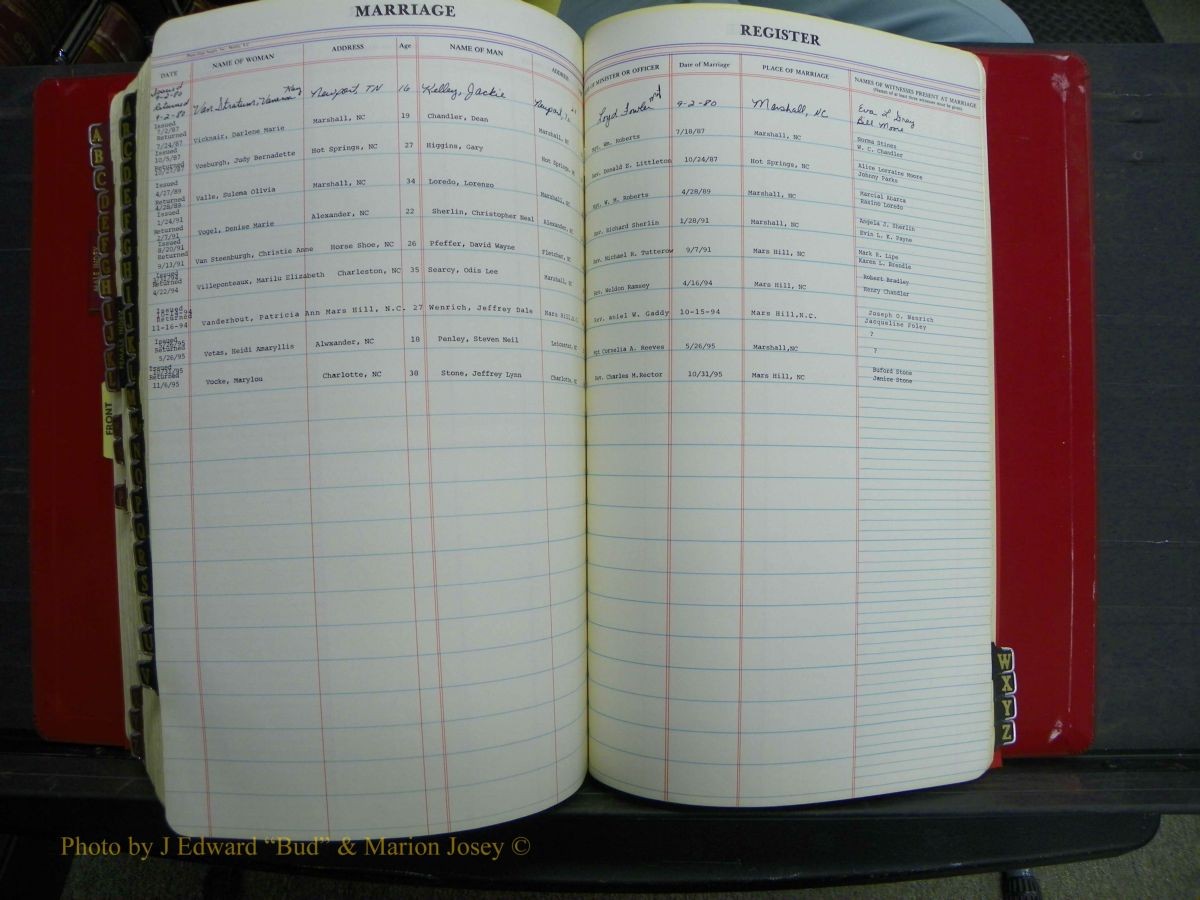 MARRIAGE
DATE NAME OF WOMAN ADDRESS Age NAME OF MAN ADDRESS
Issued
9-2-80
Returned
9-2-80 Van Stratum, Vanessa Kay Newport TN 16 Kelley, Jackie Newport, Tn
Issued
7/2/87
Returned
7/24/87 Vicknair, Darlene Marie Marshall, NC 19 Chandler, Dean Marshall, NC
Issued
10/5/87
Returned
10/27/87 Vosburgh, Judy Bernadette Hot Springs, NC 27 Higgins, Gary Hot Springs, NC
Issued
4/27/89
Returned
4/28/89 Valle, Sulema Olivia Marshall, NC 34 Loredo, Lorenzo Marshall, NC
Issued
1/24/91
Returned
2/7/91 Vogel, Denise Marie Alexander, NC 22 Sherlin, Christopher Neal Alexander, NC
Issued
8/20/91
Returned
9/13/91 Van Steenburgh, Christie Anne Horse Shoe, NC 26 Pfeffer, David Wayne Fletcher, NC
Issued
Returned
4/22/94 Villeponteaux, Marilu Elizabeth Charleston, NC 35 Searcy, Odis Lee Marshall, NC
Issued
Returned
11-16-94 Vanderhout, Patricia Ann Mars Hill, N.C. 27 Wenrich, Jeffrey Dale Mars Hill,N.C.
Issued
Returned
5/26/95 Vetas, Heidi Amaryllis Alwxander, NC 18 Penley, Steven Neil Leicester, NC
Issued
10/31/95
Returned
11/6/95 Vocke, Marylou Charlotte, NC 38 Stone, Jeffrey Lynn Charlotte, NC
REGISTER
OF MINISTER OR OFFICER Date of Marriage PLACE OF MARRIAGE NAMES OF WITNESSES PRESENT AT MARRIAGE
(Names of at least three witnesses must be given)
Loyd Fowler mt 9-2-80 Marshall, NC Eva L Gray
Bill Moore
Sgt. Wm. Roberts 7/18/87 Marshall, NC Norma Stines
W. C. Chandler
Rev. Donald E. Littleton 10/24/87 Hot Springs, NC Alice Lorraine Moore
Johnny Parks
Sgt. W. H. Roberts 4/28/89 Marshall, NC Marcial Abarca
Rasino Loredo
Rev. Richard Sherlin 1/28/91 Marshall, NC Angela J. Sherlin
Evin L. K. Payne
Rev. Michael R. Tutterow 9/7/91 Mars Hill, NC Mark R. Lipe
Karen L. Brendle
Rev. Weldon Ramsey 4/16/94 Mars Hill, NC Robert Bradley
Henry Chandler
Rev. aniel W. Gaddy 10-15-94 Mars Hill,N.C. Joseph O. Wenrich
Jacqueline Foley
Mgt Cornelia A. Reeves 5/26/95 Marshall,NC ?
?
Rev. Charles M.Rector 10/31/95 Mars Hill, NC Buford Stone
Janice Stone
A
B
C
D
E
F
G
H
FRONT
W
X
Y
Z
Photo by J Edward “Bud” & Marion Josey ©